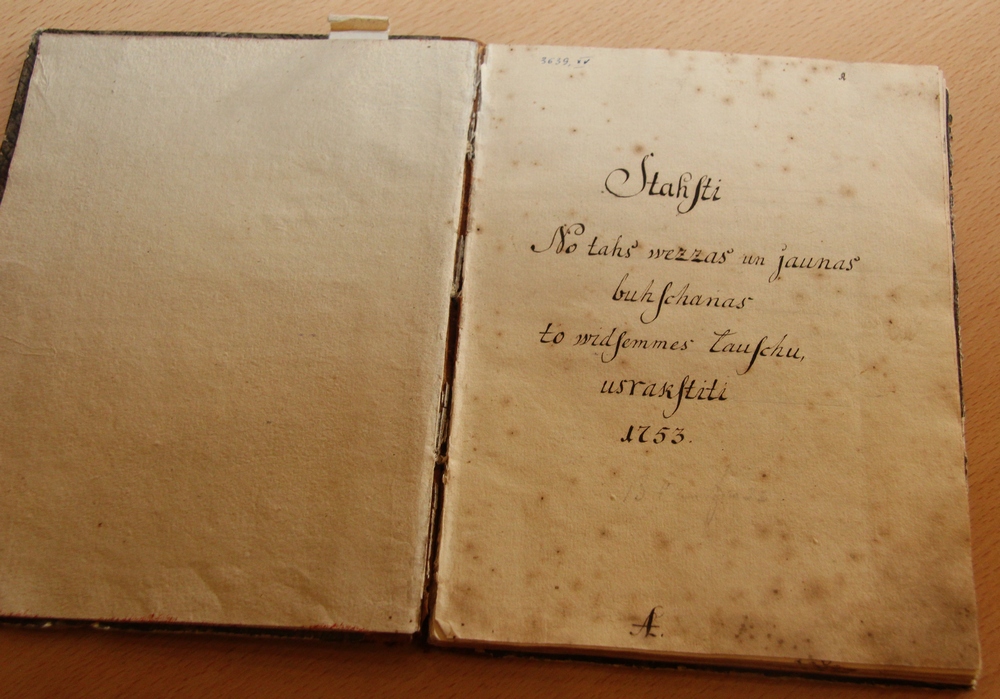 3639,
Stahſti
No tahs wezzas un jaunas
buhſchanas
to widſemmes lauſchu,
usrakſtiti
1753.
A.